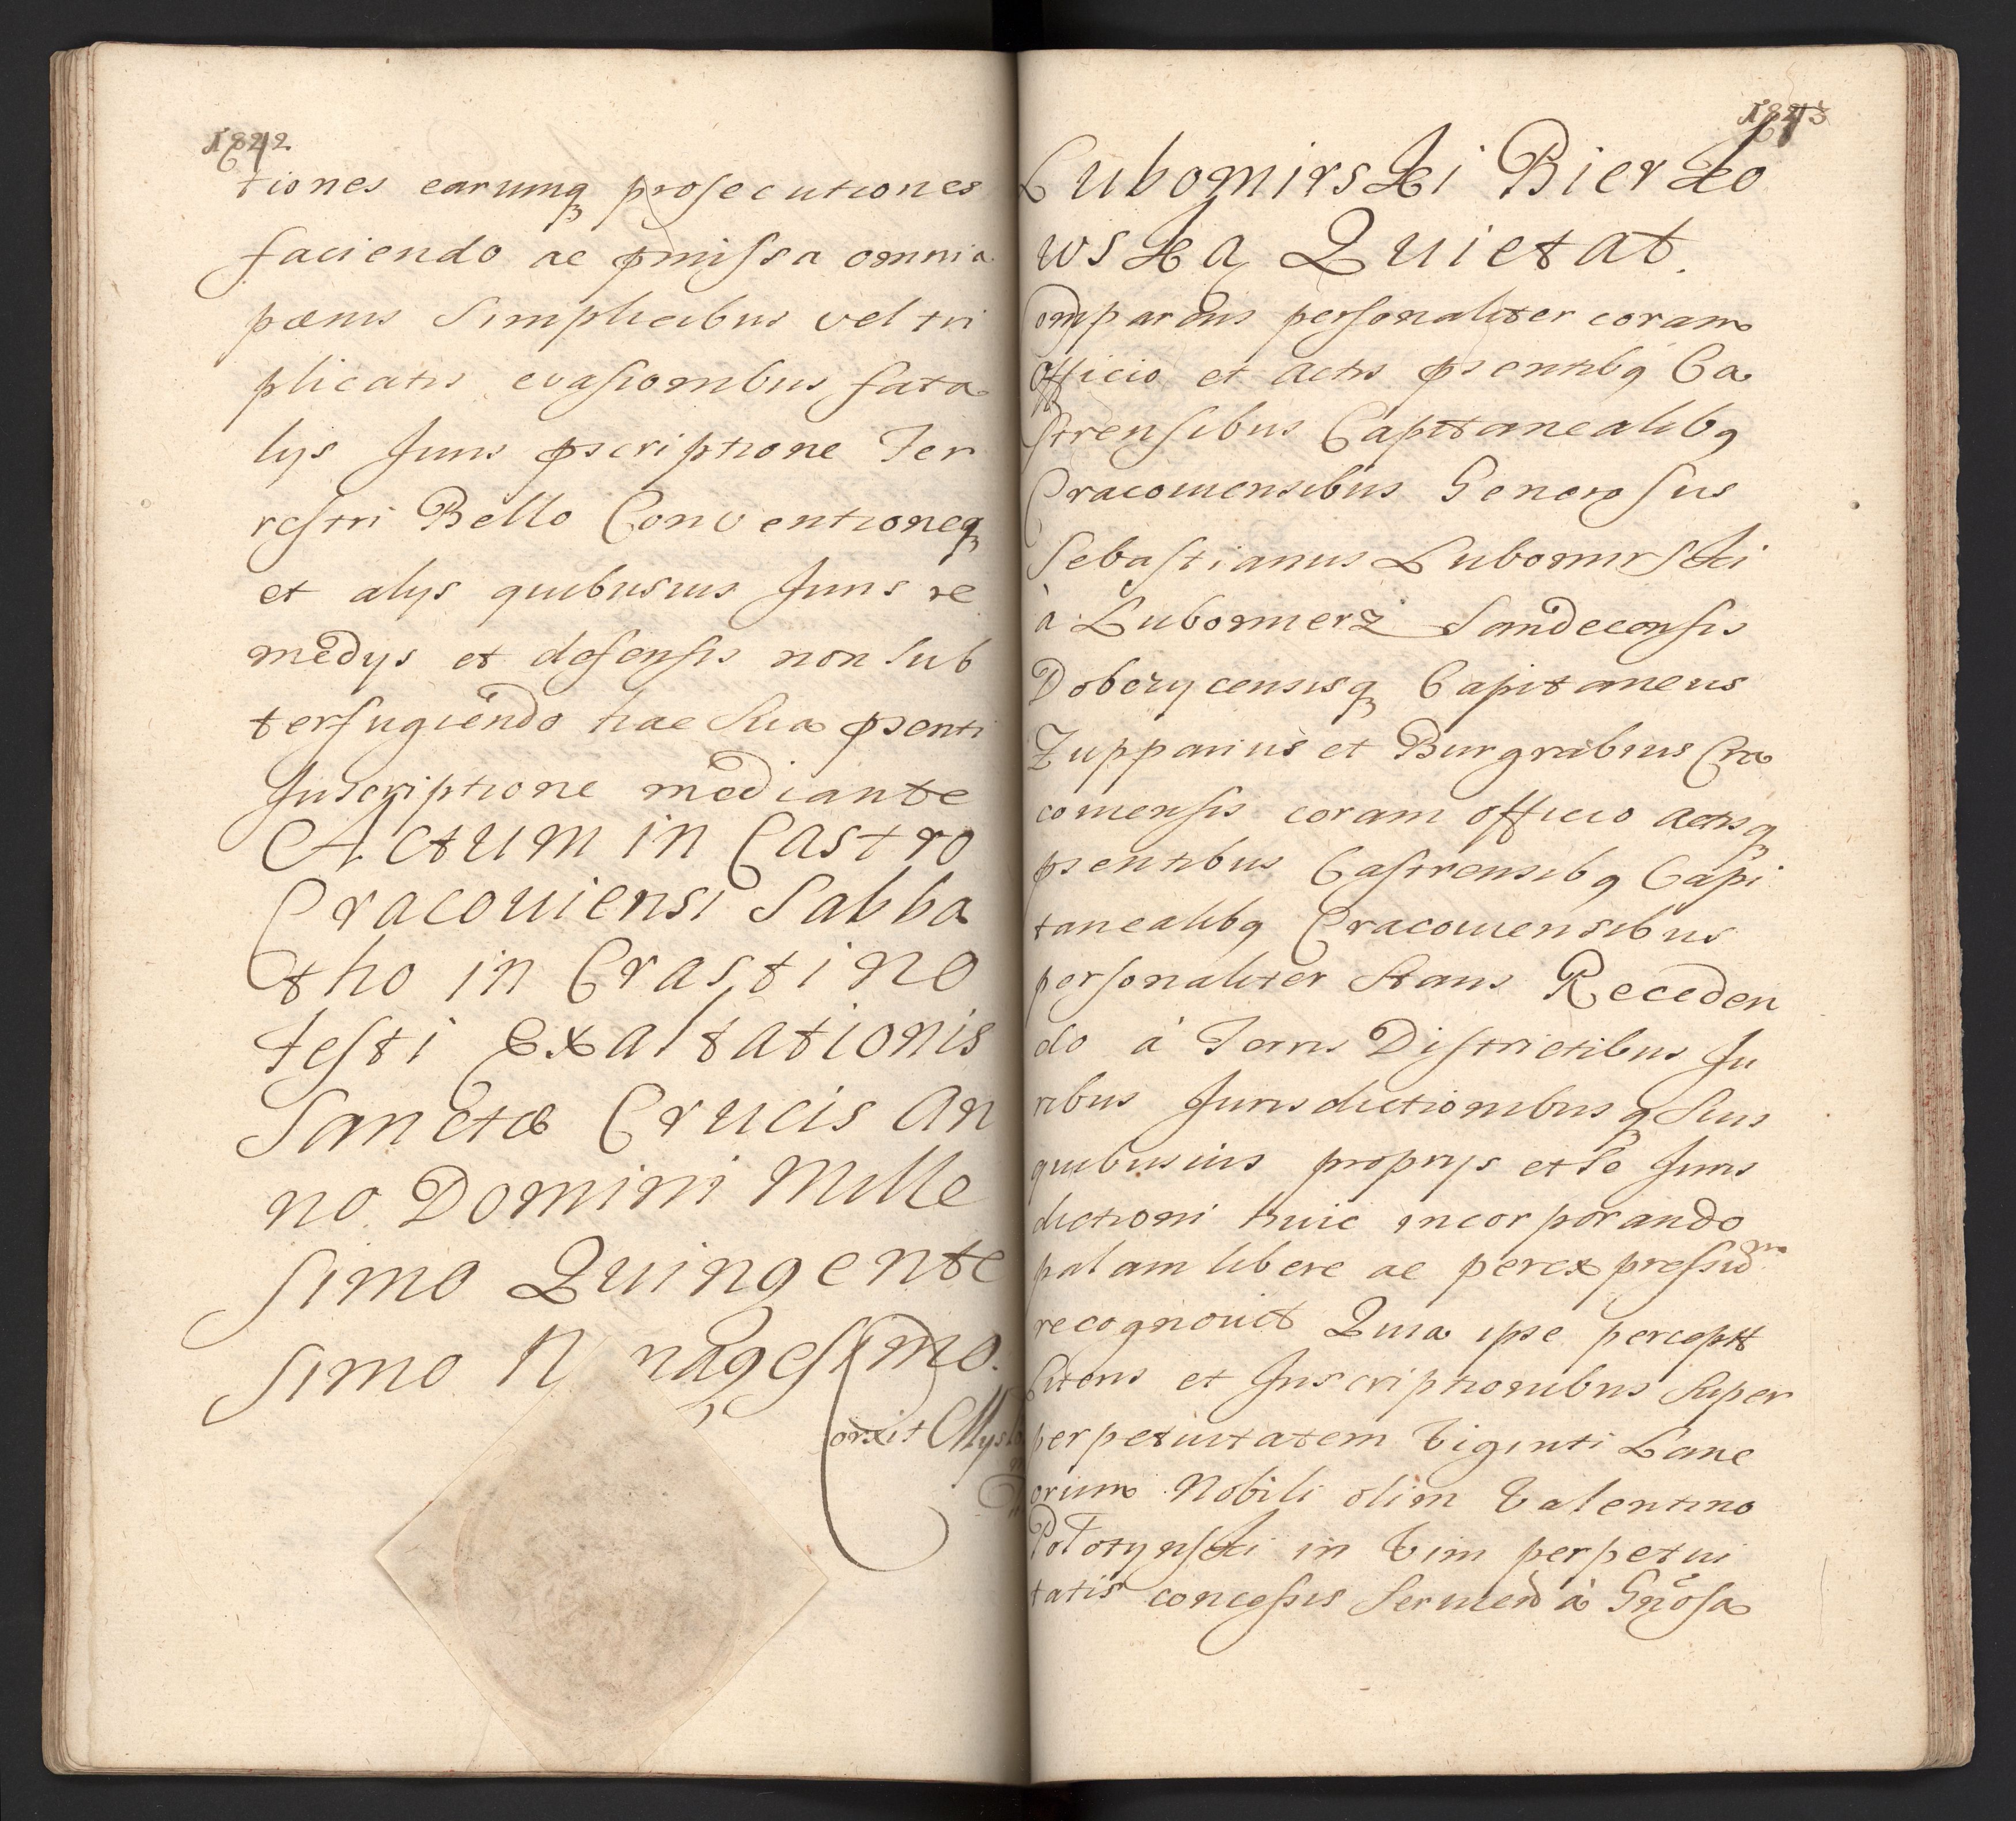 1842
tiones earumq prosecutiones
faciendo ac pmissa omnia
pænis Simplicibus vel tri
plicatis evasionibus fata
lijs Juris pscriptione Ter
restri Bello Conventioneq
et alijs quibusuis Juris re
medijs et defensis non sub
terfugiendo hac Sua psenti
Inscriptione mediante
Actum in Castro
Cracouiensi Sabba
tho in Crastino
festi Exaltationis
Sanctæ Crucis An
no Domini Mille
simo Quingente
simo N nagesimo.
orxit
1843
Lubomirski Bierko
wska Quietat.
Comparens personaliter coram
officio et actis psentibq Ca
strensibus Capitanealibq
Cracouiensibus Generosus
Sebastianus Lubomirski
à Lubomierz Sandecensis
Dobczycensisq Capitaneus
Zupparius et Burgrabius Cra
couiensis coram officio actisq
psentibus Castrensibq Capi
tanealibq Cracouiensibus
personaliter stans Receden
do à Terris Districtibus Ju
ribus Jurisdictionibusq Suis
quibusuis proprijs et Se Juris
dictioni huic incorporando
palam libere ac per expressum
recognouit Quia ipse percept
Literis et Inscriptionibus Super
perpetuitatem Viginti Lane
orum Nobili olim Valentino
Potorynski in Vim perpetui
tatis concessis Seruien à Gnosa